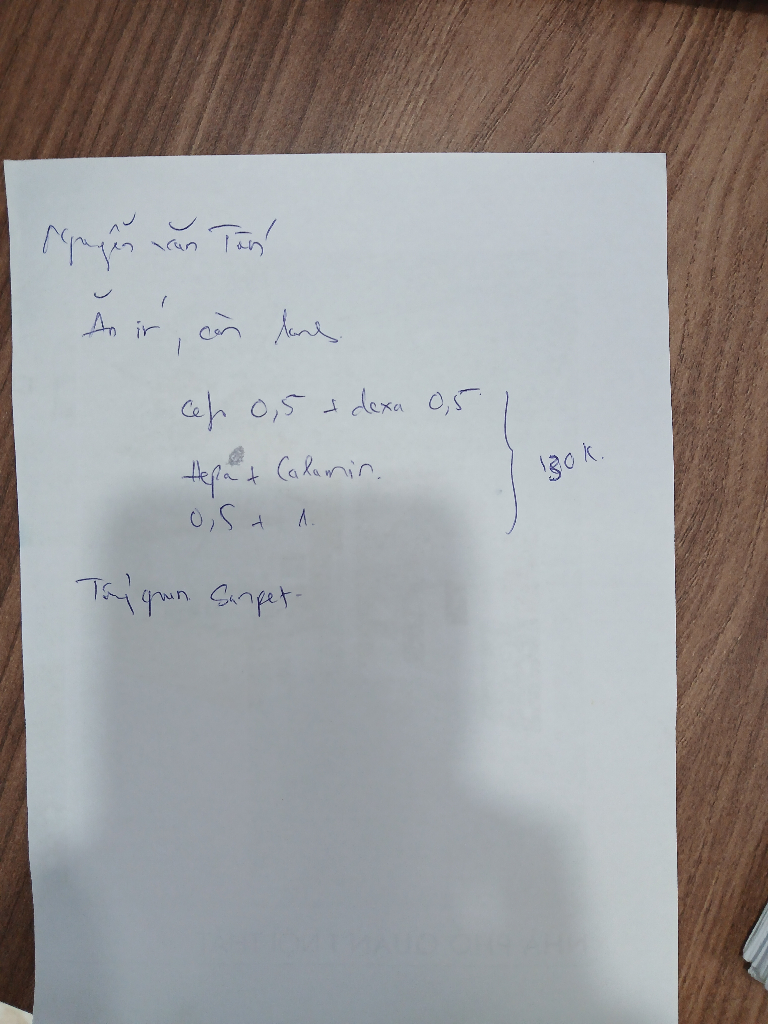 Nguyễn Văn Tấn
Ăn ít, còn
cep 0,5 + dexa 0,5
Hepa + Calamin.
0,5 + 1.
} 130K.
Tẩy giun Sanpet